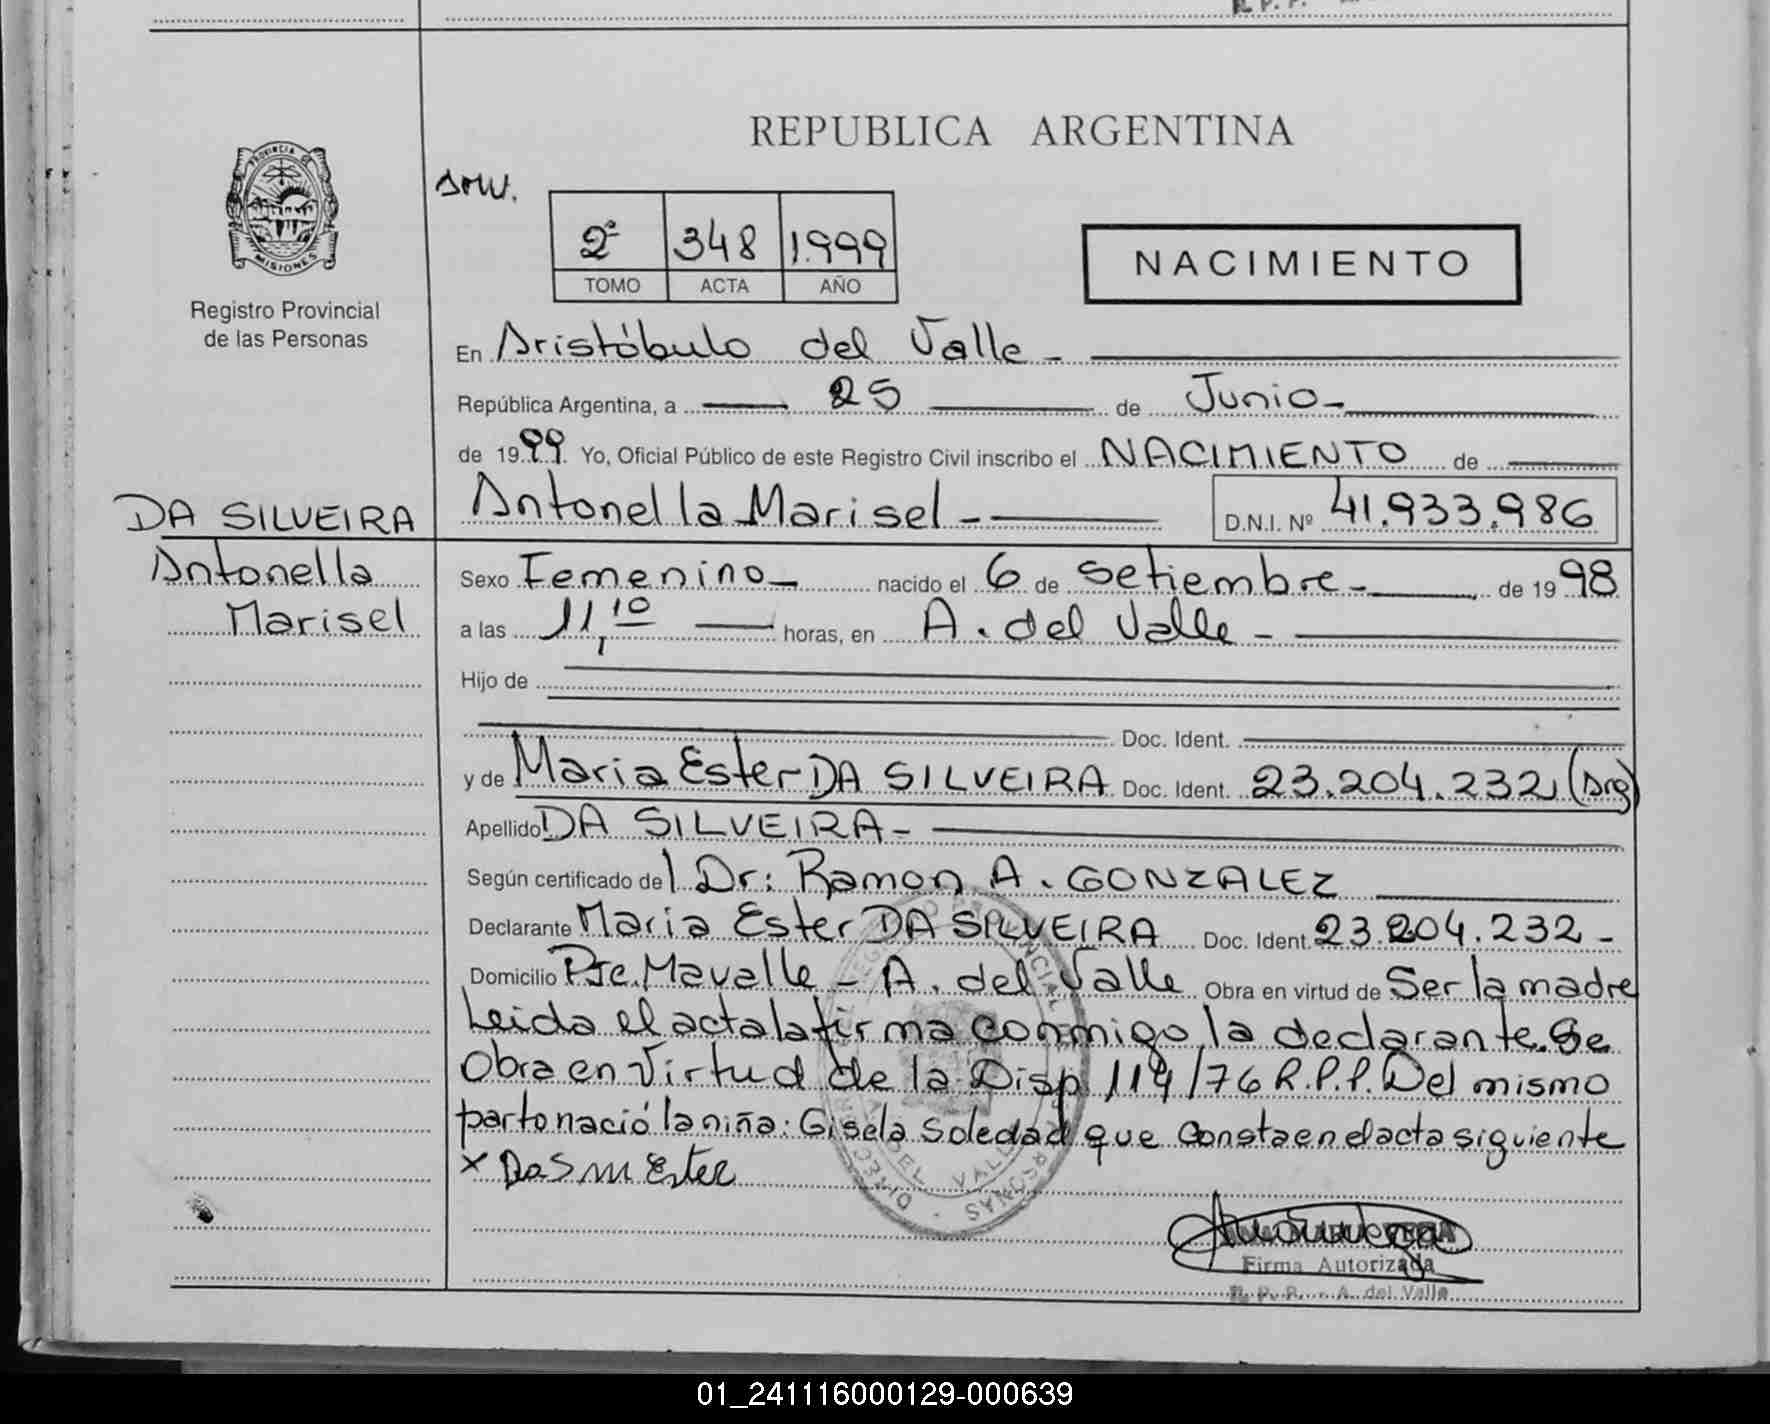 REPUBLICA ARGENTINA
PROVINCIA DE
MISIONES
Registro Provincial
de las Personas
2º 348 1.999
TOMO ACTA AÑO
NACIMIENTO
En Aristóbulo del Valle -
República Argentina, a 25 de Junio -
de 1999. Yo, Oficial Público de este Registro Civil inscribo el NACIMIENTO de
DA SILVEIRA
Antonella
Marisel
Antonella Marisel - D.N.I. Nº 41.933.986
Sexo Femenino - nacido el 6 de Setiembre - de 1998
a las 11,10 horas, en A. del Valle -
Hijo de
Doc. Ident.
y de Maria Ester DA SILVEIRA Doc. Ident. 23.204.232 (Arg)
Apellido DA SILVEIRA -
Según certificado del Dr: Ramon A. GONZALEZ
Declarante Maria Ester DA SILVEIRA Doc. Ident. 23.204.232 -
Domicilio Pje. Mavalle - A. del Valle Obra en virtud de Ser la madre
Leida el acta la firma conmigo la declarante. Se
Obra en Virtud de la Disp 114/76 R.P.P. Del mismo
parto nació la niña: Gisela Soledad que Consta en el acta siguiente
x Da S M Ester
Firma Autorizada
R. P. P. - A. del Valle
01_241116000129-000639